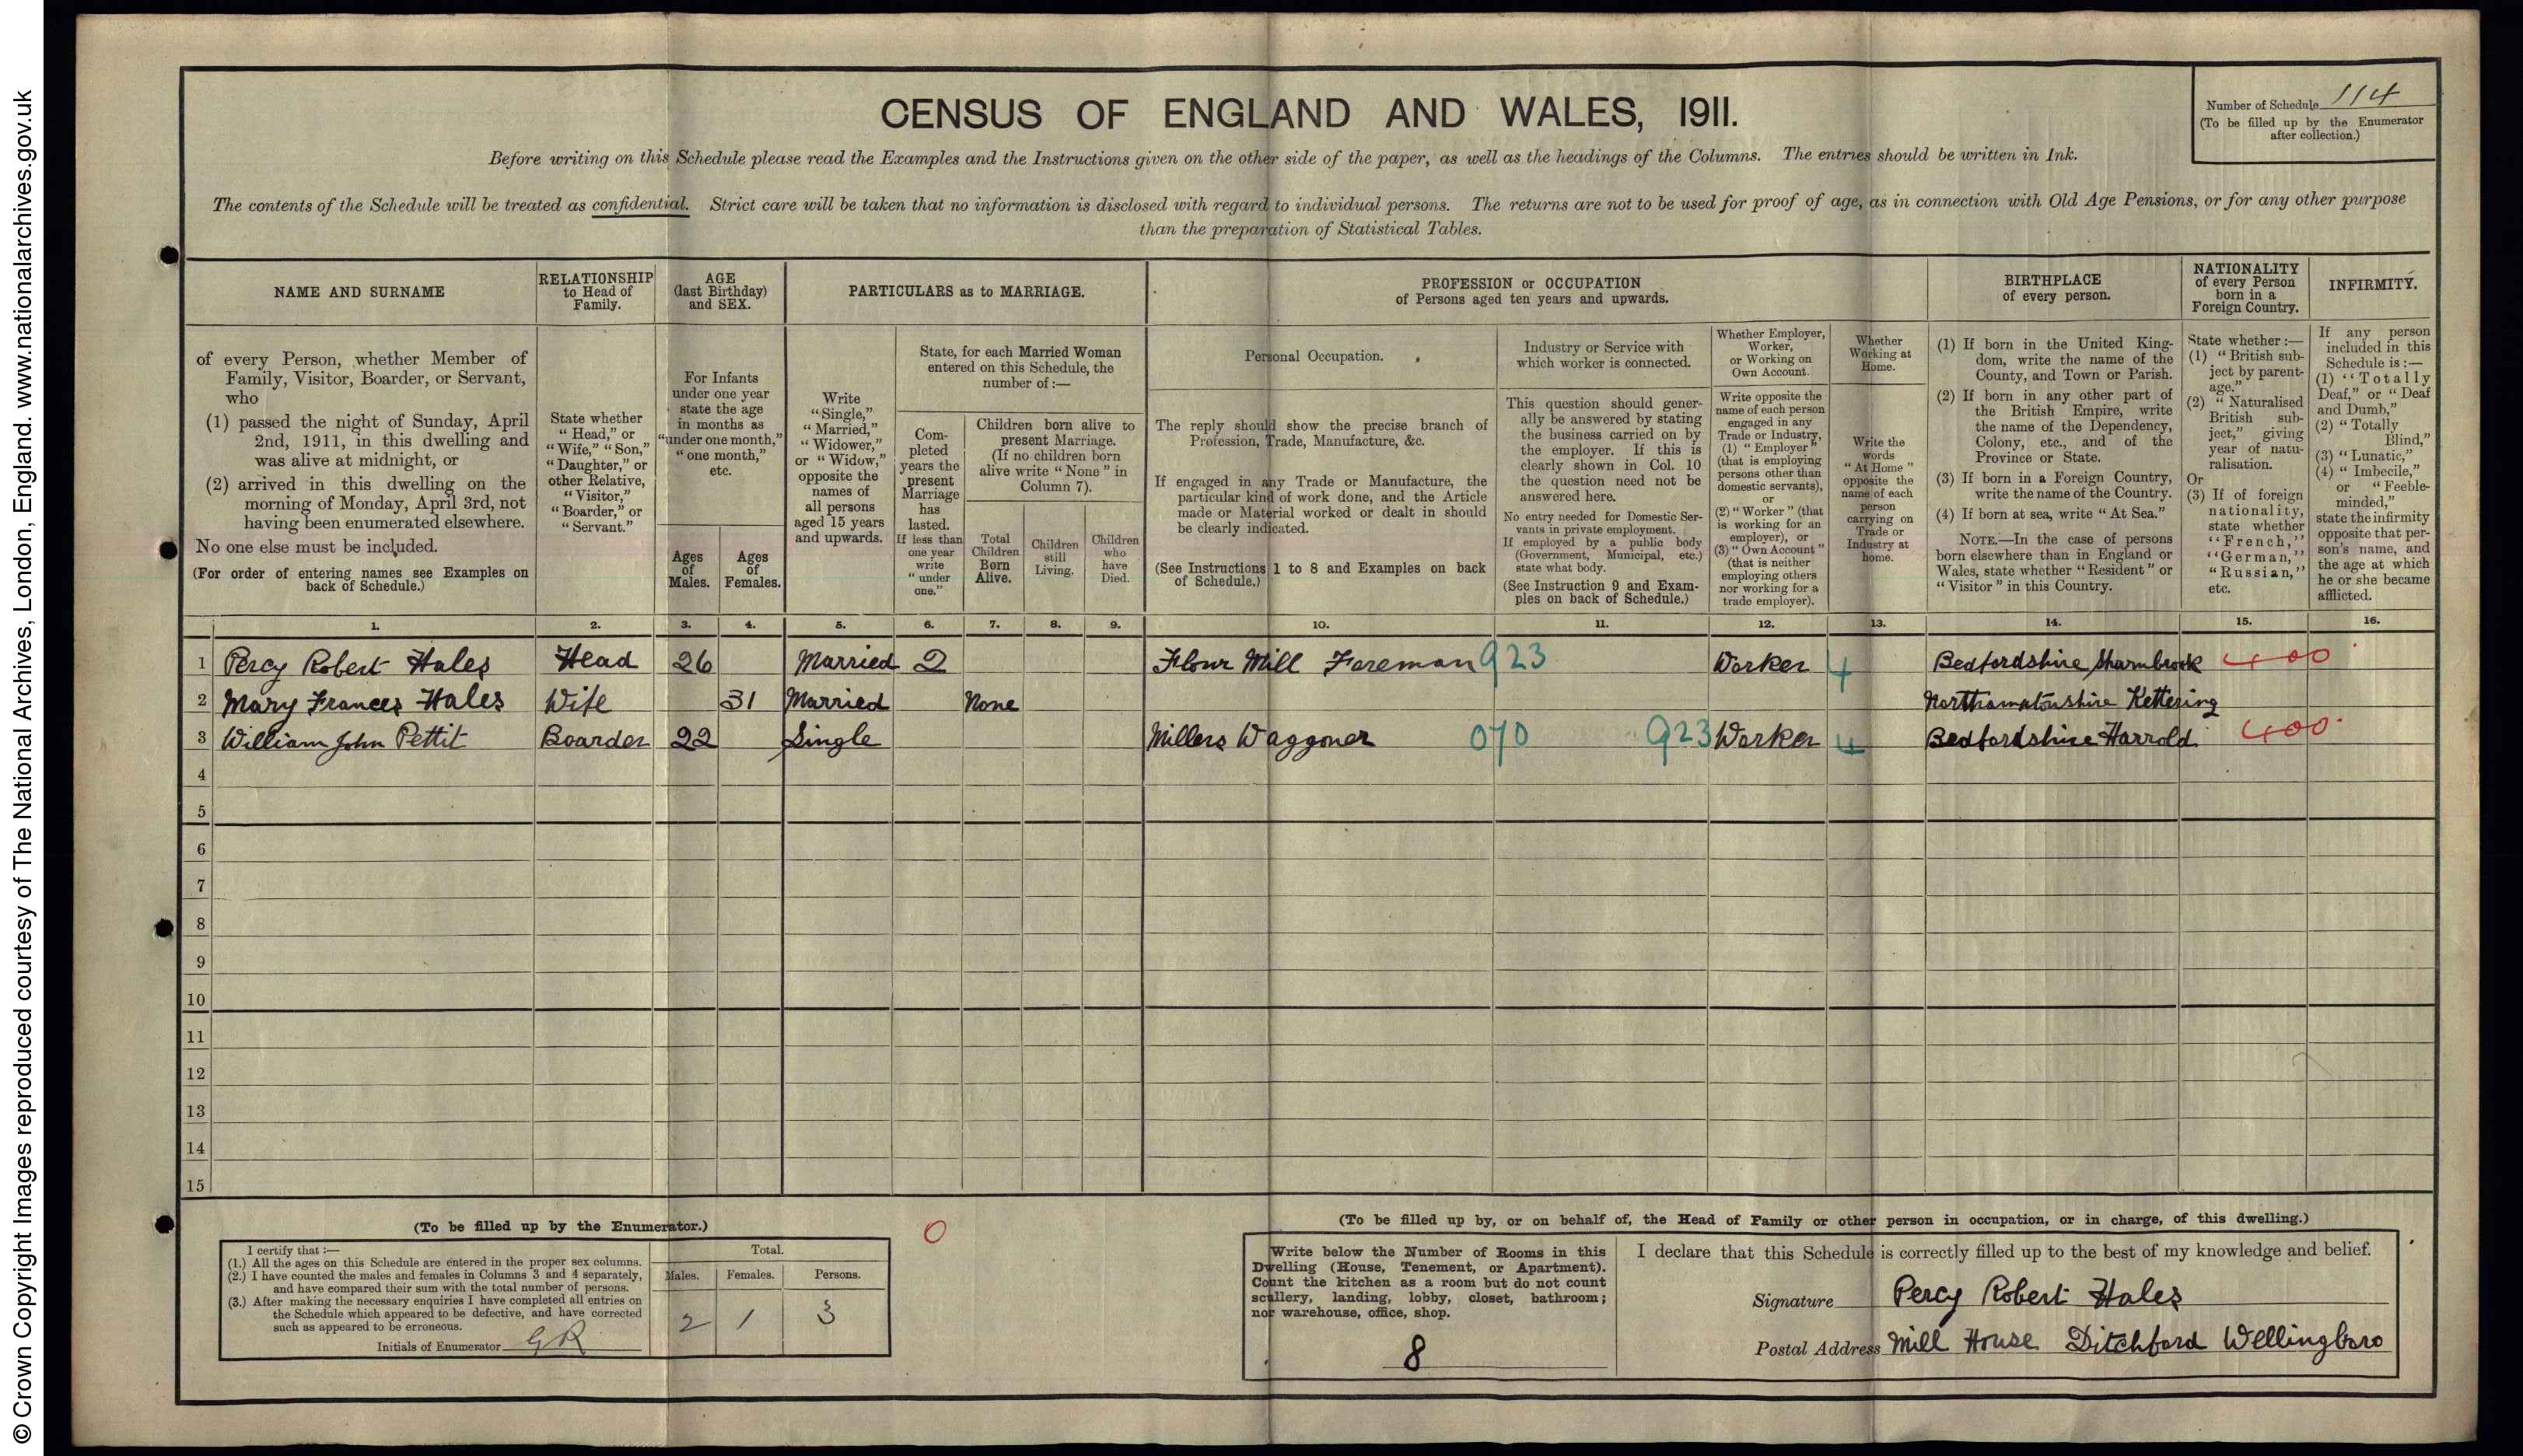 © Crown Copyright Images reproduced courtesy of The National Archives, London, England. www.nationalarchives.gov.uk
CENSUS OF ENGLAND AND WALES, 1911.
Number of Schedule 114
(To be filled up by the Enumerator
after collection.)
Before writing on this Schedule please read the Examples and the Instructions given on the other side of the paper, as well as the headings of the Columns. The entries should be written in Ink.
The contents of the Schedule will be treated as confidential. Strict care will be taken that no information is disclosed with regard to individual persons. The returns are not to be used for proof of age, as in connection with Old Age Pensions, or for any other purpose
than the preparation of Statistical Tables.
NAME AND SURNAME
of every Person, whether Member of
Family, Visitor, Boarder, or Servant,
who
(1) passed the night of Sunday, April
2nd, 1911, in this dwelling and
was alive at midnight, or
(2) arrived in this dwelling on the
morning of Monday, April 3rd, not
having been enumerated elsewhere.
No one else must be included.
(For order of entering names see Examples on
back of Schedule.)
RELATIONSHIP
to Head of
Family.
State whether
"Head," or
"Wife," "Son,"
"Daughter," or
other Relative,
"Visitor,"
"Boarder," or
"Servant."
AGE
(last Birthday)
and SEX.
For Infants
under one year
state the age
in months as
"under one month,"
"one month,"
etc.
Ages
of
Males.
Ages
of
Females.
PARTICULARS as to MARRIAGE.
Write
"Single,"
"Married,"
"Widower,"
or "Widow,"
opposite the
names of
all persons
aged 15 years
and upwards.
State, for each Married Woman
entered on this Schedule, the
number of :—
Com-
pleted
years the
present
Marriage
has
lasted.
If less than
one year
write
"under
one."
Children born alive to
present Marriage.
(If no children born
alive write "None" in
Column 7).
Total
Children
Born
Alive.
Children
still
Living.
Children
who
have
Died.
PROFESSION or OCCUPATION
of Persons aged ten years and upwards.
Personal Occupation.
The reply should show the precise branch of
Profession, Trade, Manufacture, &c.
If engaged in any Trade or Manufacture, the
particular kind of work done, and the Article
made or Material worked or dealt in should
be clearly indicated.
(See Instructions 1 to 8 and Examples on back
of Schedule.)
Industry or Service with
which worker is connected.
This question should gener-
ally be answered by stating
the business carried on by
the employer. If this is
clearly shown in Col. 10
the question need not be
answered here.
No entry needed for Domestic Ser-
vants in private employment.
If employed by a public body
(Government, Municipal, etc.)
state what body.
(See Instruction 9 and Exam-
ples on back of Schedule.)
Whether Employer,
Worker,
or Working on
Own Account.
Write opposite the
name of each person
engaged in any
Trade or Industry,
(1) "Employer"
(that is employing
persons other than
domestic servants),
or
(2) "Worker" (that
is working for an
employer), or
(3) "Own Account"
(that is neither
employing others
nor working for a
trade employer).
Whether
Working at
Home.
Write the
words
"At Home"
opposite the
name of each
person
carrying on
Trade or
Industry at
home.
BIRTHPLACE
of every person.
(1) If born in the United King-
dom, write the name of the
County, and Town or Parish.
(2) If born in any other part of
the British Empire, write
the name of the Dependency,
Colony, etc., and of the
Province or State.
(3) If born in a Foreign Country,
write the name of the Country.
(4) If born at sea, write "At Sea."
NOTE.—In the case of persons
born elsewhere than in England or
Wales, state whether "Resident" or
"Visitor" in this Country.
NATIONALITY
of every Person
born in a
Foreign Country.
State whether :—
(1) "British sub-
ject by parent-
age."
(2) "Naturalised
British sub-
ject," giving
year of natu-
ralisation.
Or
(3) If of foreign
nationality,
state whether
"French,"
"German,"
"Russian,"
etc.
INFIRMITY.
If any person
included in this
Schedule is :—
(1) "Totally
Deaf," or "Deaf
and Dumb,"
(2) "Totally
Blind,"
(3) "Lunatic,"
(4) "Imbecile,"
or "Feeble-
minded,"
state the infirmity
opposite that per-
son's name, and
the age at which
he or she became
afflicted.
1. 2. 3. 4. 5. 6. 7. 8. 9. 10. 11. 12. 13. 14. 15. 16.
1 Percy Robert Hales Head 26 Married 2 Flour Mill Foreman 923 Worker 4 Bedfordshire Sharnbrook 400
2 Mary Frances Hales Wife 31 Married None Northamatonshire Kettering
3 William John Pettit Boarder 22 Single Millers Waggoner 070 923 Worker 4 Bedfordshire Harrold 400
4
5
6
7
8
9
10
11
12
13
14
15
(To be filled up by the Enumerator.)
I certify that :—
(1.) All the ages on this Schedule are entered in the proper sex columns.
(2.) I have counted the males and females in Columns 3 and 4 separately,
and have compared their sum with the total number of persons.
(3.) After making the necessary enquiries I have completed all entries on
the Schedule which appeared to be defective, and have corrected
such as appeared to be erroneous.
Initials of Enumerator GR
Total.
Males. Females. Persons.
2 1 3
0
(To be filled up by, or on behalf of, the Head of Family or other person in occupation, or in charge, of this dwelling.)
Write below the Number of Rooms in this
Dwelling (House, Tenement, or Apartment).
Count the kitchen as a room but do not count
scullery, landing, lobby, closet, bathroom;
nor warehouse, office, shop.
8
I declare that this Schedule is correctly filled up to the best of my knowledge and belief.
Signature Percy Robert Hales
Postal Address Mill House Ditchford Wellingboro